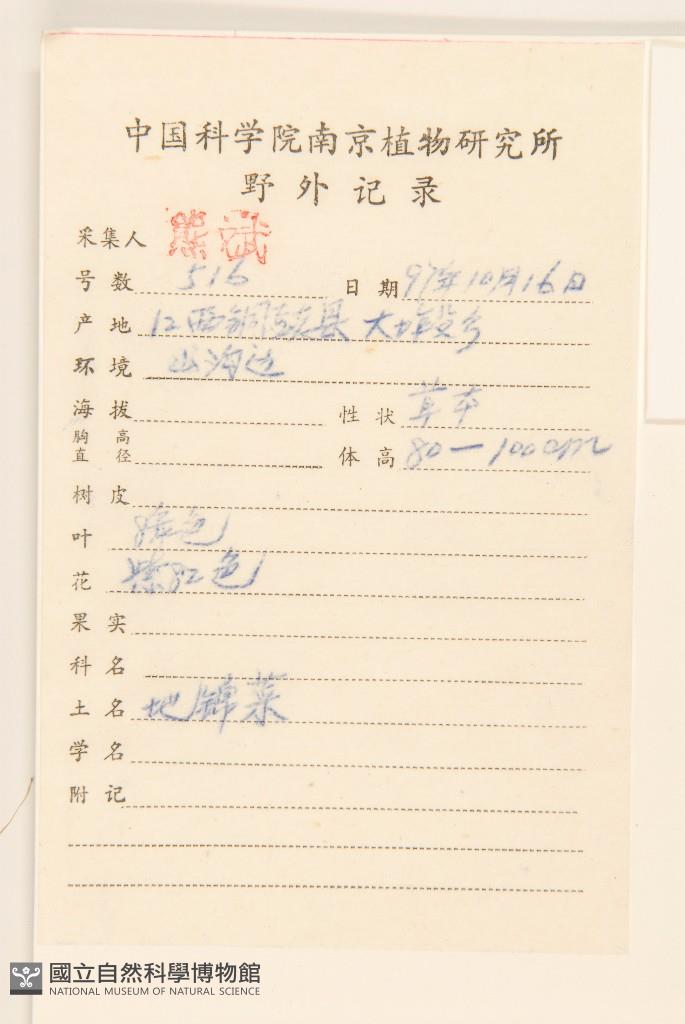 中国科学院南京植物研究所
野外记录
采集人 熊斌
号数 516 日期 97年10月16日
产地 江西铜鼓县 大塅乡
环境 山沟边
海拔 性状 草本
胸高直径 体高 80—100cm
树皮
叶 绿色
花 紫红色
果实
科名
土名 地锦菜
学名
附记
國立自然科學博物館
NATIONAL MUSEUM OF NATURAL SCIENCE